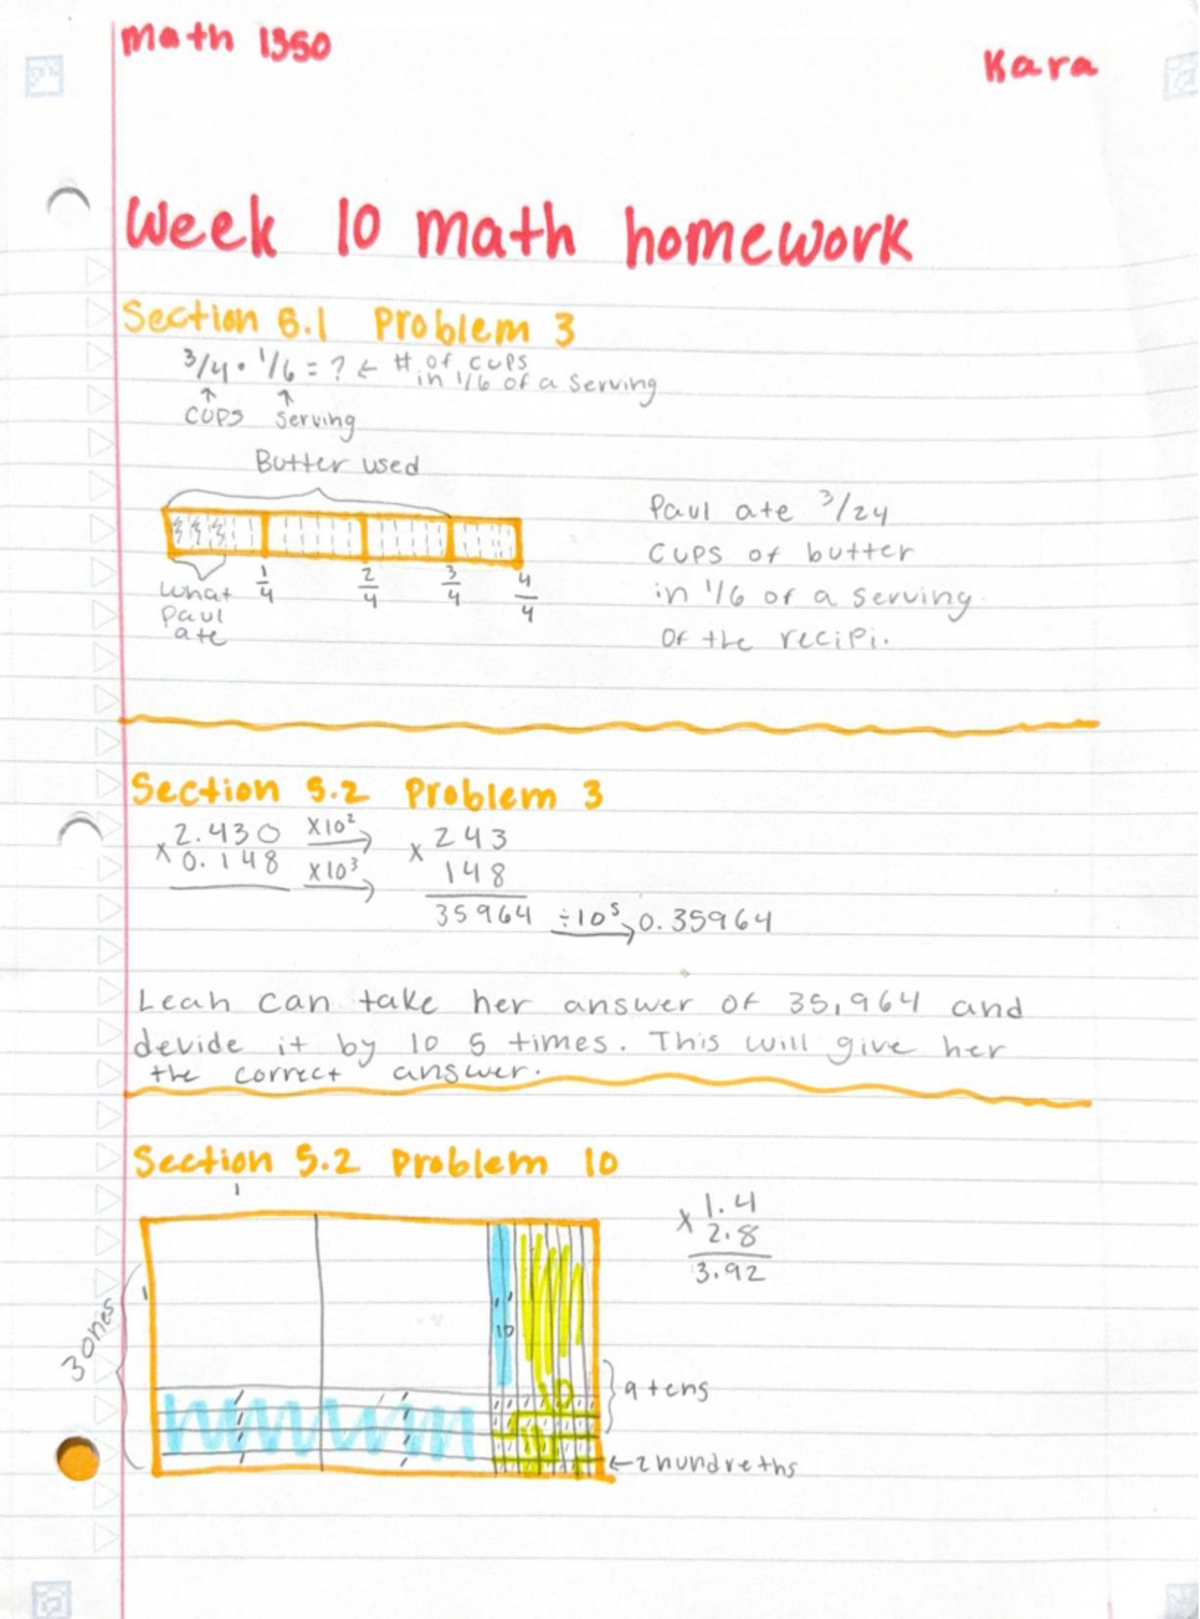 Math 1350
Kara
Week 10 math homework
Section 5.1 Problem 3
3/4 · 1/6 = ? ← # of cups
in 1/6 of a serving
↑ ↑
cups serving
Butter used
1/4 2/4 3/4 4/4
what
Paul
ate
Paul ate 3/24
cups of butter
in 1/6 of a serving
of the recipi.
Section 5.2 Problem 3
2.430 ×10² → 243
× 0.148 ×10³ → × 148
35964 ÷10⁵ → 0.35964
Leah can take her answer of 35,964 and
devide it by 10 5 times. This will give her
the correct answer.
Section 5.2 Problem 10
1
1
3 ones
10
10
9 tens
← 2 hundreths
1.4
× 2.8
3.92